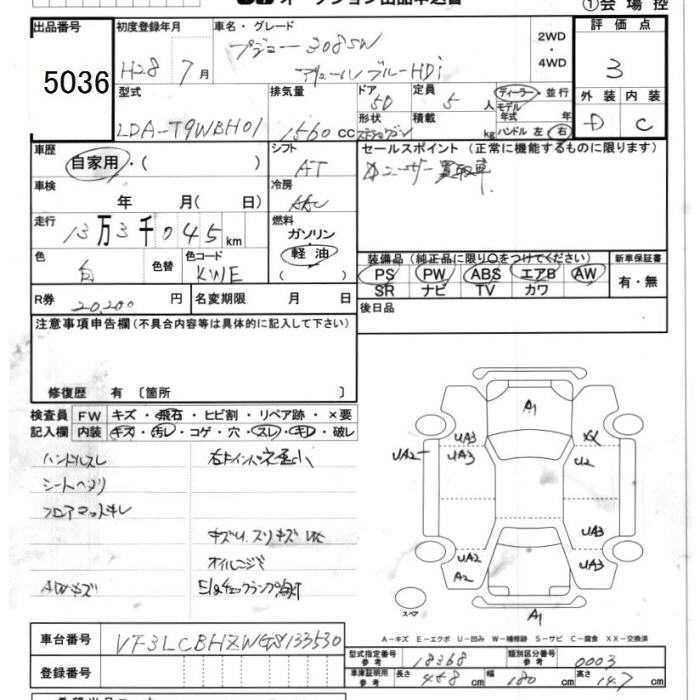 オークション出品申込書
①会場控
出品番号
5036
初度登録年月
H28 7月
車名・グレード
プジョー 308SW
アリュール ブルーHDi
2WD
・
4WD
評価点
3
外装 内装
D C
型式
LDA-T9WBH01
排気量
1560 cc
ドア 5D
形状
定員 5人
積載 kg
ディーラー・並行
モデル年式 年
ハンドル 左 右
車歴
自家用・( )
シフト
AT
車検
年 月( 日)
冷房
AAC
走行
13万3千045km
燃料
ガソリン
軽油
( )
色
白
色替
色コード
KWE
R券 20,200円
名変期限 月 日
セールスポイント(正常に機能するものに限ります)
ユーザー買取車
装備品(純正品に限り○をつけてください)
PS PW ABS エアB AW
SR ナビ TV カワ
新車保証書
有・無
後日品
注意事項申告欄(不具合内容等は具体的に記入して下さい)
修復歴 有〔箇所 〕
検査員記入欄
FW キズ・飛石・ヒビ割・リペア跡・×要
内装 キズ・汚レ・コゲ・穴・スレ・キレ・破レ
ハンドルスレ
シートヘタリ
フロアマットキレ
AWキズ
キズU、スリキズ
オイルニジミ
E/gチェックランプ点灯
A1
UA3
UA3
UA2
XX
U2
UA3
UA3
UA2
A2
A1
スペア
A-キズ E-エクボ U-凹み W-補修跡 S-サビ C-腐食 XX-交換済
車台番号
VF3LCBHZWGS133530
登録番号
型式指定番号 参考 18368
類別区分番号 参考 0003
車庫証明用 参考 長さ 458 cm 幅 180 cm 高さ 147 cm